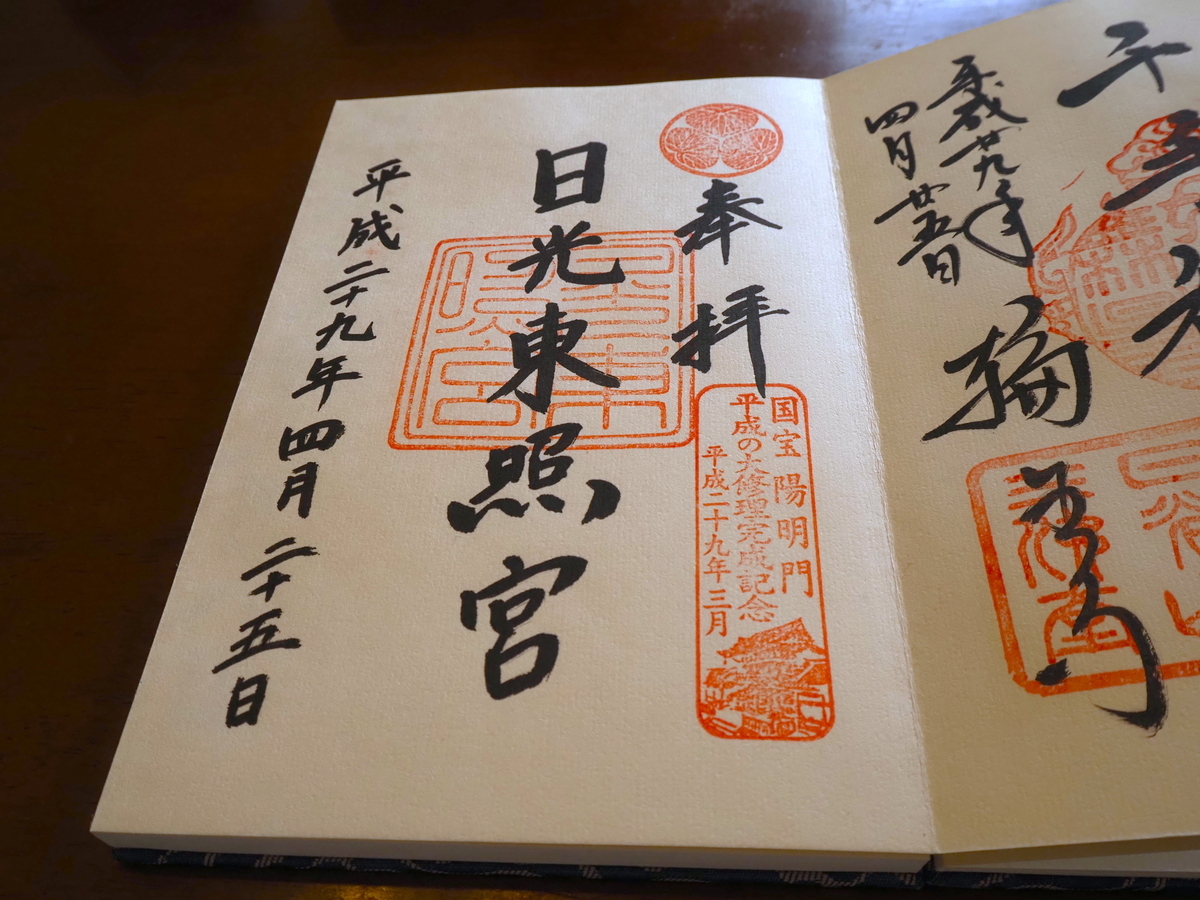 平成廿九年
四月廿五日
輪王寺
奉拝
国宝 陽明門
平成の大修理完成記念
平成二十九年三月
日光東照宮
平成二十九年四月二十五日